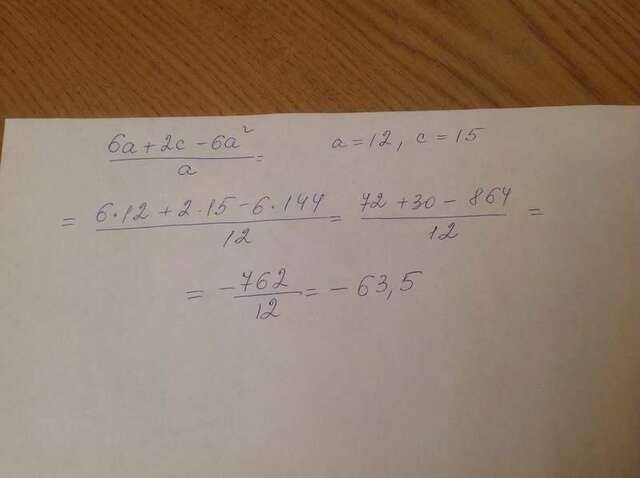 (6a + 2c - 6a²)/a =   a = 12, c = 15
= (6·12 + 2·15 - 6·144)/12 = (72 + 30 - 864)/12 =
= -762/12 = -63,5